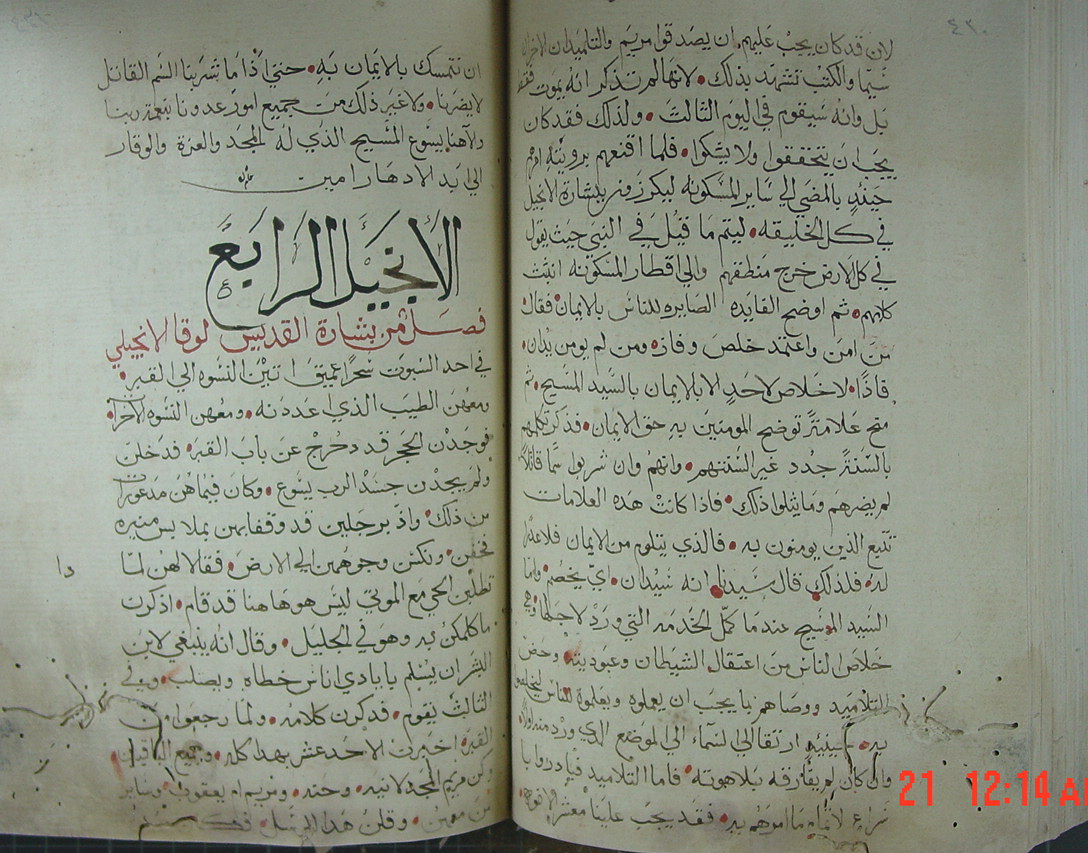 ٤٢٠
لان قد كان يجب عليهم ان يصدقوا مريم والتلميدان الاخران
سيّما والكتب تشهد بذلك • لانها لم تذكر انه يموت فقط
بل وانه سيقوم في اليوم الثالث • ولذلك فقد كان
يجب ان يتحققوا ولا يشكوا • فلما اقنعهم برويته امرهم
حينيذٍ بالمضي الي ساير المسكونه ليكرزون ببشارة الانجيل
في كل الخليقه • ليتم ما قيل في النبي حيث يقول
في كل الارض خرج منطقهم والي اقطار المسكونه انبثت
كلامهم • ثم اوضح الفايده الصايره للناس بالايمان فقال
من امن واعتمد خلص وفاز • ومن لم يومن يدان •
فاذًا • لا خلاص لاحدٍ الا بالايمان بالسيد المسيح • ثم
منح علامة توضح المومنين به حق الايمان • فذكر تكلمهم
بالسنةٍ جدد غير السنتهم • وانهم وان شربوا سمًا قاتلًا
لم يضرهم وما يتلوا ذلك • فاذا كانت هده العلامات
تتبع الذين يومنون به • فالذي يتلوم من الايمان فلا عذر
له • فلذلك قال سيدنا انه سيدان • اي يخصم • واما
السيد المسيح عندما كمّل الخدمه التي ورد لاجلها • وهي
خلاص الناس من اعتقال الشيطان وعبوديته • وحض
التلاميد ووصاهم بما يجب ان يعلوه ويعلموه للناس ليخلصوا
به • حينيذٍ ارتقا الي السماء الي الموضع الدي ورد منه اولًا
وان كان لم يفارقه بلاهوته • فاما التلاميد فبادروا با
سراع لاتمام ما امرهم به • فقد يجب علينا معشر الاخوه
ان نتمسك بالايمان به • حتي اذا ما شربنا السم القاتل
لا يضرنا • ولا غير ذلك من جميع امور عدونا بنعمة ربنا
ولاهنا يسوع المسيح الذي له المجد والعزة والوقار
الي ابد الادهار امين
الانجيل الرابع
٤
فصل من بشارة القديس لوقا الانجيلي
في احد السبوت سحرًا عميقًا اتين النسوه الي القبر •
ومعهن الطيب الذي اعددنه • ومعهن النسوه الاخر •
فوجدن الحجر قد دحرج عن باب القبر • فدخلن
ولم يجدن جسد الرب يسوع • وكان فيما هن مدعورات
من ذلك • واذ برجلين قد وقفا بهن بملابس منيره
فخفن • ونكسن وجوههن الي الارض • فقالا لهن لما
تطلبن الحي مع الموتي ليس هو هاهنا قد قام • اذكرن
ما كلمكن به وهو في الجليل • وقال انه ينبغي لابن
البشر ان يسلم بايادي اناس خطاه ويصلب • وفي
الثالث يقوم • فدكرن كلامه • ولما رجعوا من
القبر • اخبرن الاحد عش بهدا كله • وجميع الباقين •
وكن مريم المجدلانيه • وحنه • ومريم ام يعقوب • وساير
من معهن • وقلن هدا للرسل •
21 12:14 A